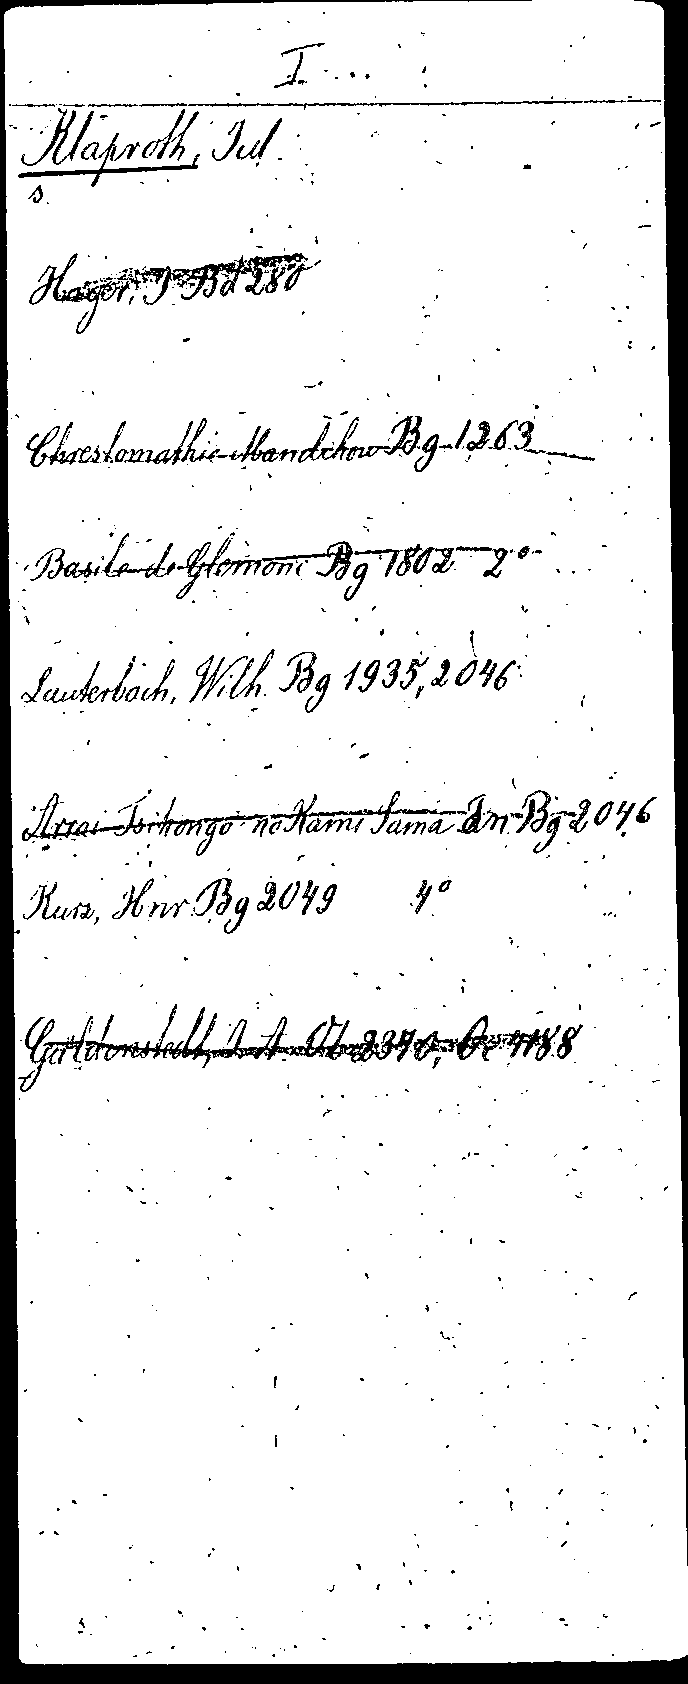 I
Klaproth, Jul
s
Hager, J Bd 280
Chrestomathie Mandchou Bg 1263
Basile de Glemone Bg 1802 2°
Lauterbach, Wilh. Bg 1935, 2046
Arrai Tsikongo no Kami Sama Bg 2046
Kurz, Hnr Bg 2049 4°
Güldenstedt, J. A. 2370, 4188